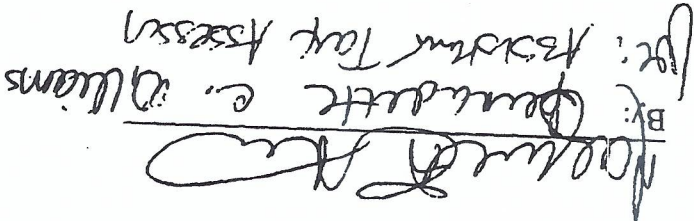 By: Bernadette C. Williams
for: Assistant Tax Assessor